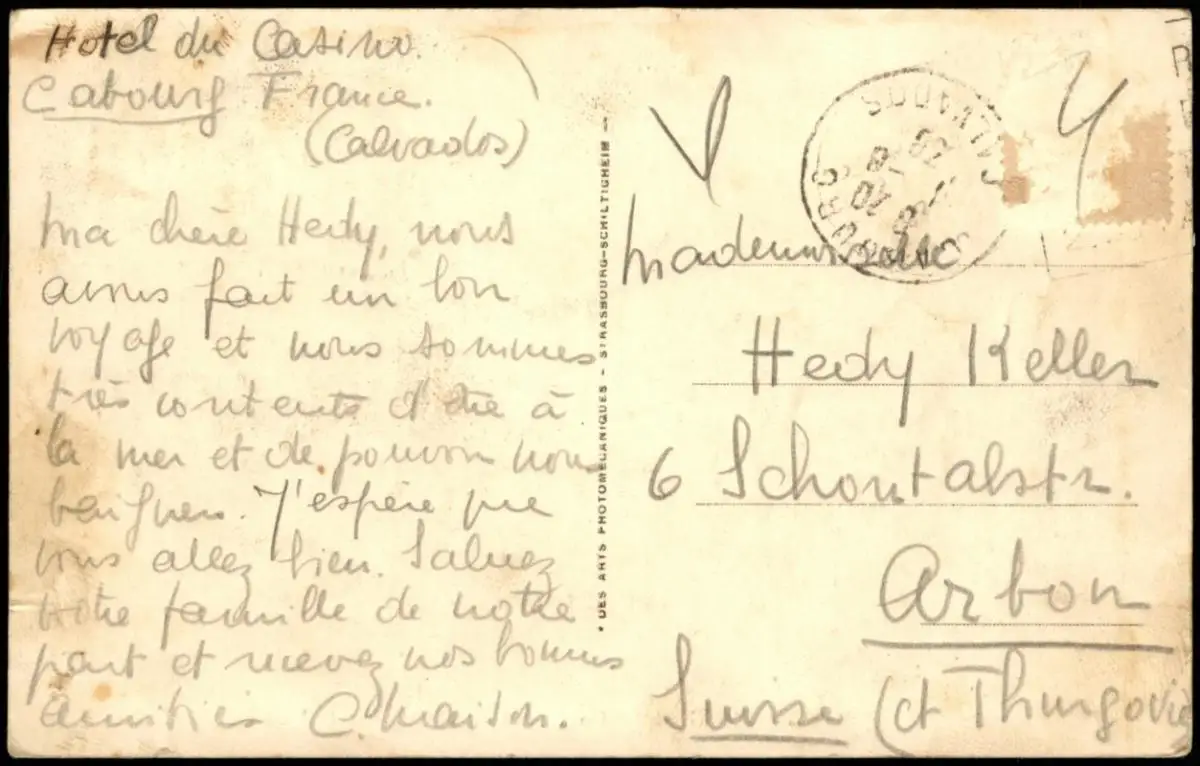 Hotel du Casino.
Cabourg France.
(Calvados)
Ma chère Hedy, nous
avons fait un bon
voyage et nous sommes
très contents d'être à
la mer et de pouvoir nous
baigner. J'espère que
vous allez bien. Saluez
votre famille de notre
part et recevez nos bonnes
amitiés C. Maison.
DES ARTS PHOTOMECANIQUES - STRASBOURG-SCHILTIGHEIM
CALVADOS
Mademoiselle
Hedy Keller
6 Schontalstr.
Arbon
Suisse (ct Thurgovie